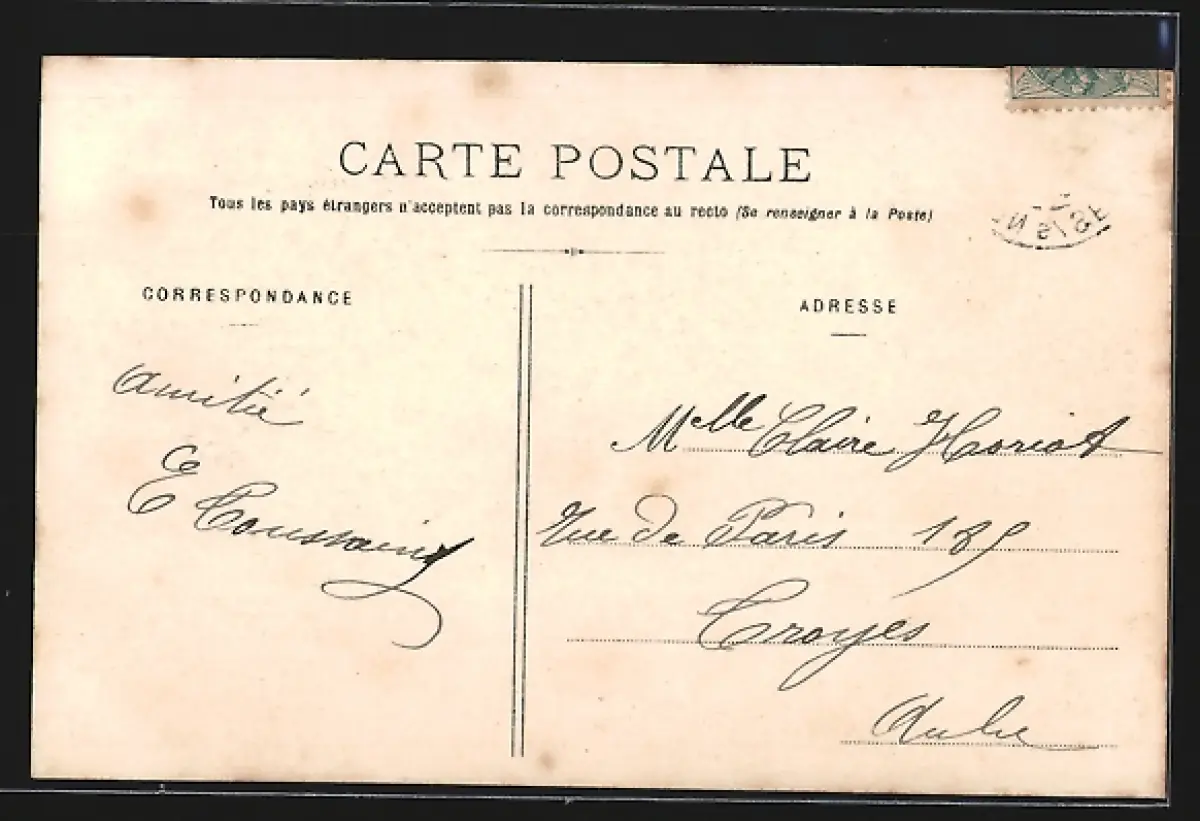 CARTE POSTALE
Tous les pays étrangers n'acceptent pas la correspondance au recto (Se renseigner à la Poste)
CORRESPONDANCE
Amitié
E Toussaint
ADRESSE
Melle Claire Horiot
Rue de Paris 189
Troyes
Aube